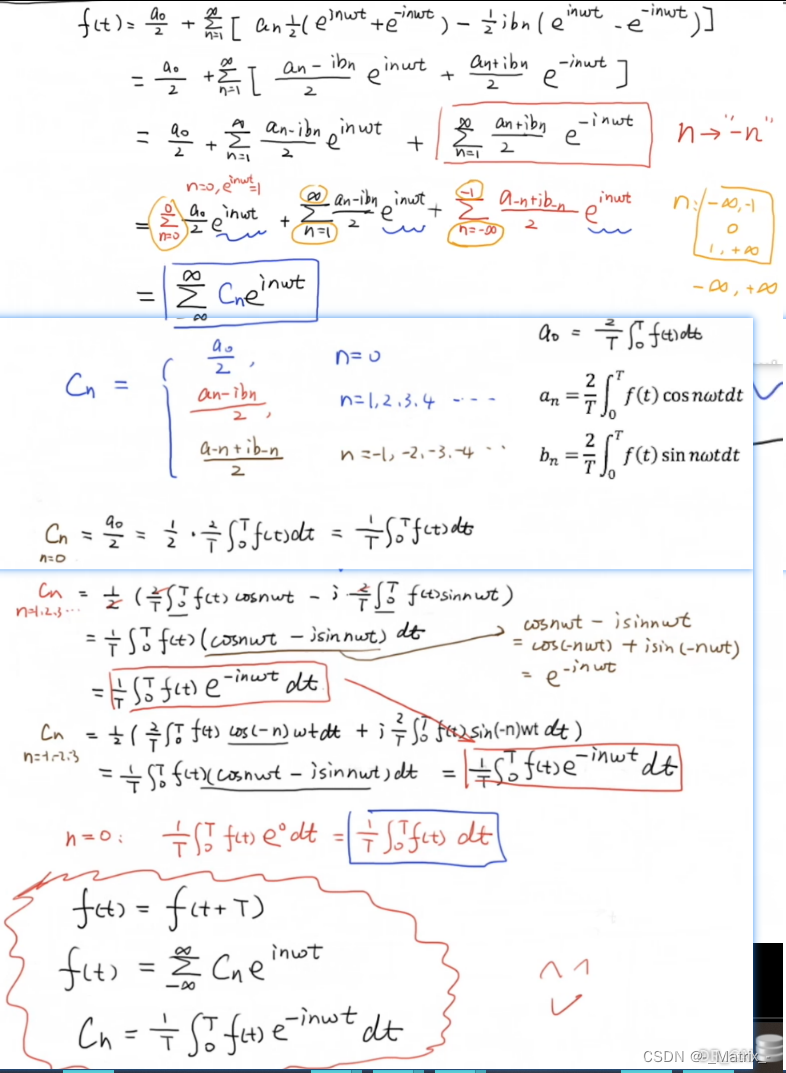 f(t) = a₀/2 + ∑_{n=1}^{∞} [ aₙ ½ (e^{inωt} + e^{-inωt}) − ½ i bₙ (e^{inωt} − e^{-inωt}) ]
= a₀/2 + ∑_{n=1}^{∞} [ (aₙ − ibₙ)/2 e^{inωt} + (aₙ + ibₙ)/2 e^{-inωt} ]
= a₀/2 + ∑_{n=1}^{∞} (aₙ − ibₙ)/2 e^{inωt} + ∑_{n=1}^{∞} (aₙ + ibₙ)/2 e^{-inωt} n → "−n"
n=0, e^{inωt}=1
= ∑_{n=0}^{0} a₀/2 e^{inωt} + ∑_{n=1}^{∞} (aₙ − ibₙ)/2 e^{inωt} + ∑_{n=-∞}^{-1} (a₋ₙ + ib₋ₙ)/2 e^{inωt} n: −∞, −1
0
1, +∞
−∞, +∞
= ∑_{-∞}^{∞} Cₙ e^{inωt}
a₀ = 2/T ∫₀ᵀ f(t)dt
Cₙ = { a₀/2, n=0
(aₙ − ibₙ)/2, n=1,2,3,4 ----
aₙ = 2/T ∫₀ᵀ f(t) cos nωt dt
(a₋ₙ + ib₋ₙ)/2 n=−1,−2,−3,−4 ··
bₙ = 2/T ∫₀ᵀ f(t) sin nωt dt
Cₙ = a₀/2 = 1/2 · 2/T ∫₀ᵀ f(t)dt = 1/T ∫₀ᵀ f(t)dt
n=0
Cₙ = 1/2 ( 2/T ∫₀ᵀ f(t) cosnωt − i 2/T ∫₀ᵀ f(t) sinnωt )
n=1,2,3···
= 1/T ∫₀ᵀ f(t) (cosnωt − isinnωt) dt
cosnωt − isinnωt
= cos(−nωt) + isin(−nωt)
= e^{-inωt}
= 1/T ∫₀ᵀ f(t) e^{-inωt} dt
Cₙ = ½ ( 2/T ∫₀ᵀ f(t) cos(−n)ωt dt + i 2/T ∫₀ᵀ f(t) sin(−n)ωt dt )
n=−1,−2,3
= 1/T ∫₀ᵀ f(t)(cosnωt − isinnωt)dt = 1/T ∫₀ᵀ f(t) e^{-inωt} dt
n=0: 1/T ∫₀ᵀ f(t) e⁰ dt = 1/T ∫₀ᵀ f(t) dt
f(t) = f(t+T)
f(t) = ∑_{-∞}^{∞} Cₙ e^{inωt}
Cₙ = 1/T ∫₀ᵀ f(t) e^{-inωt} dt